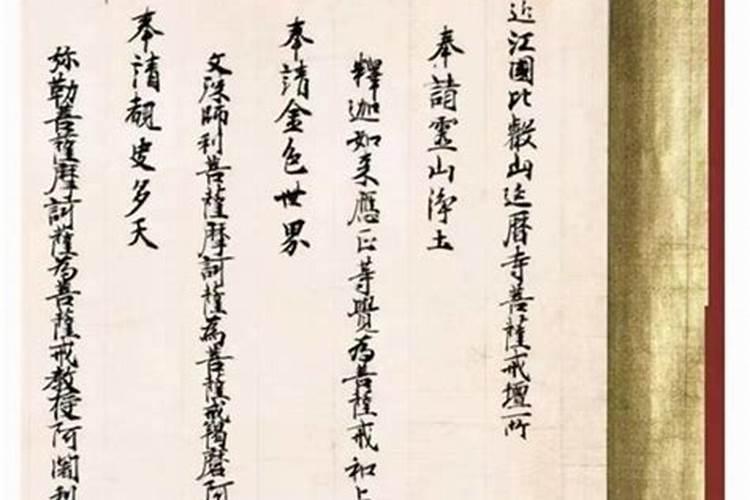 近江國比叡山延曆寺菩薩戒壇所
奉請靈山淨土
釋迦如来應正等覺為菩薩戒和上
奉請金色世界
文殊師利菩薩摩訶薩為菩薩戒羯磨阿
奉請覩史多天
弥勒菩薩摩訶薩為菩薩戒教授阿闍利